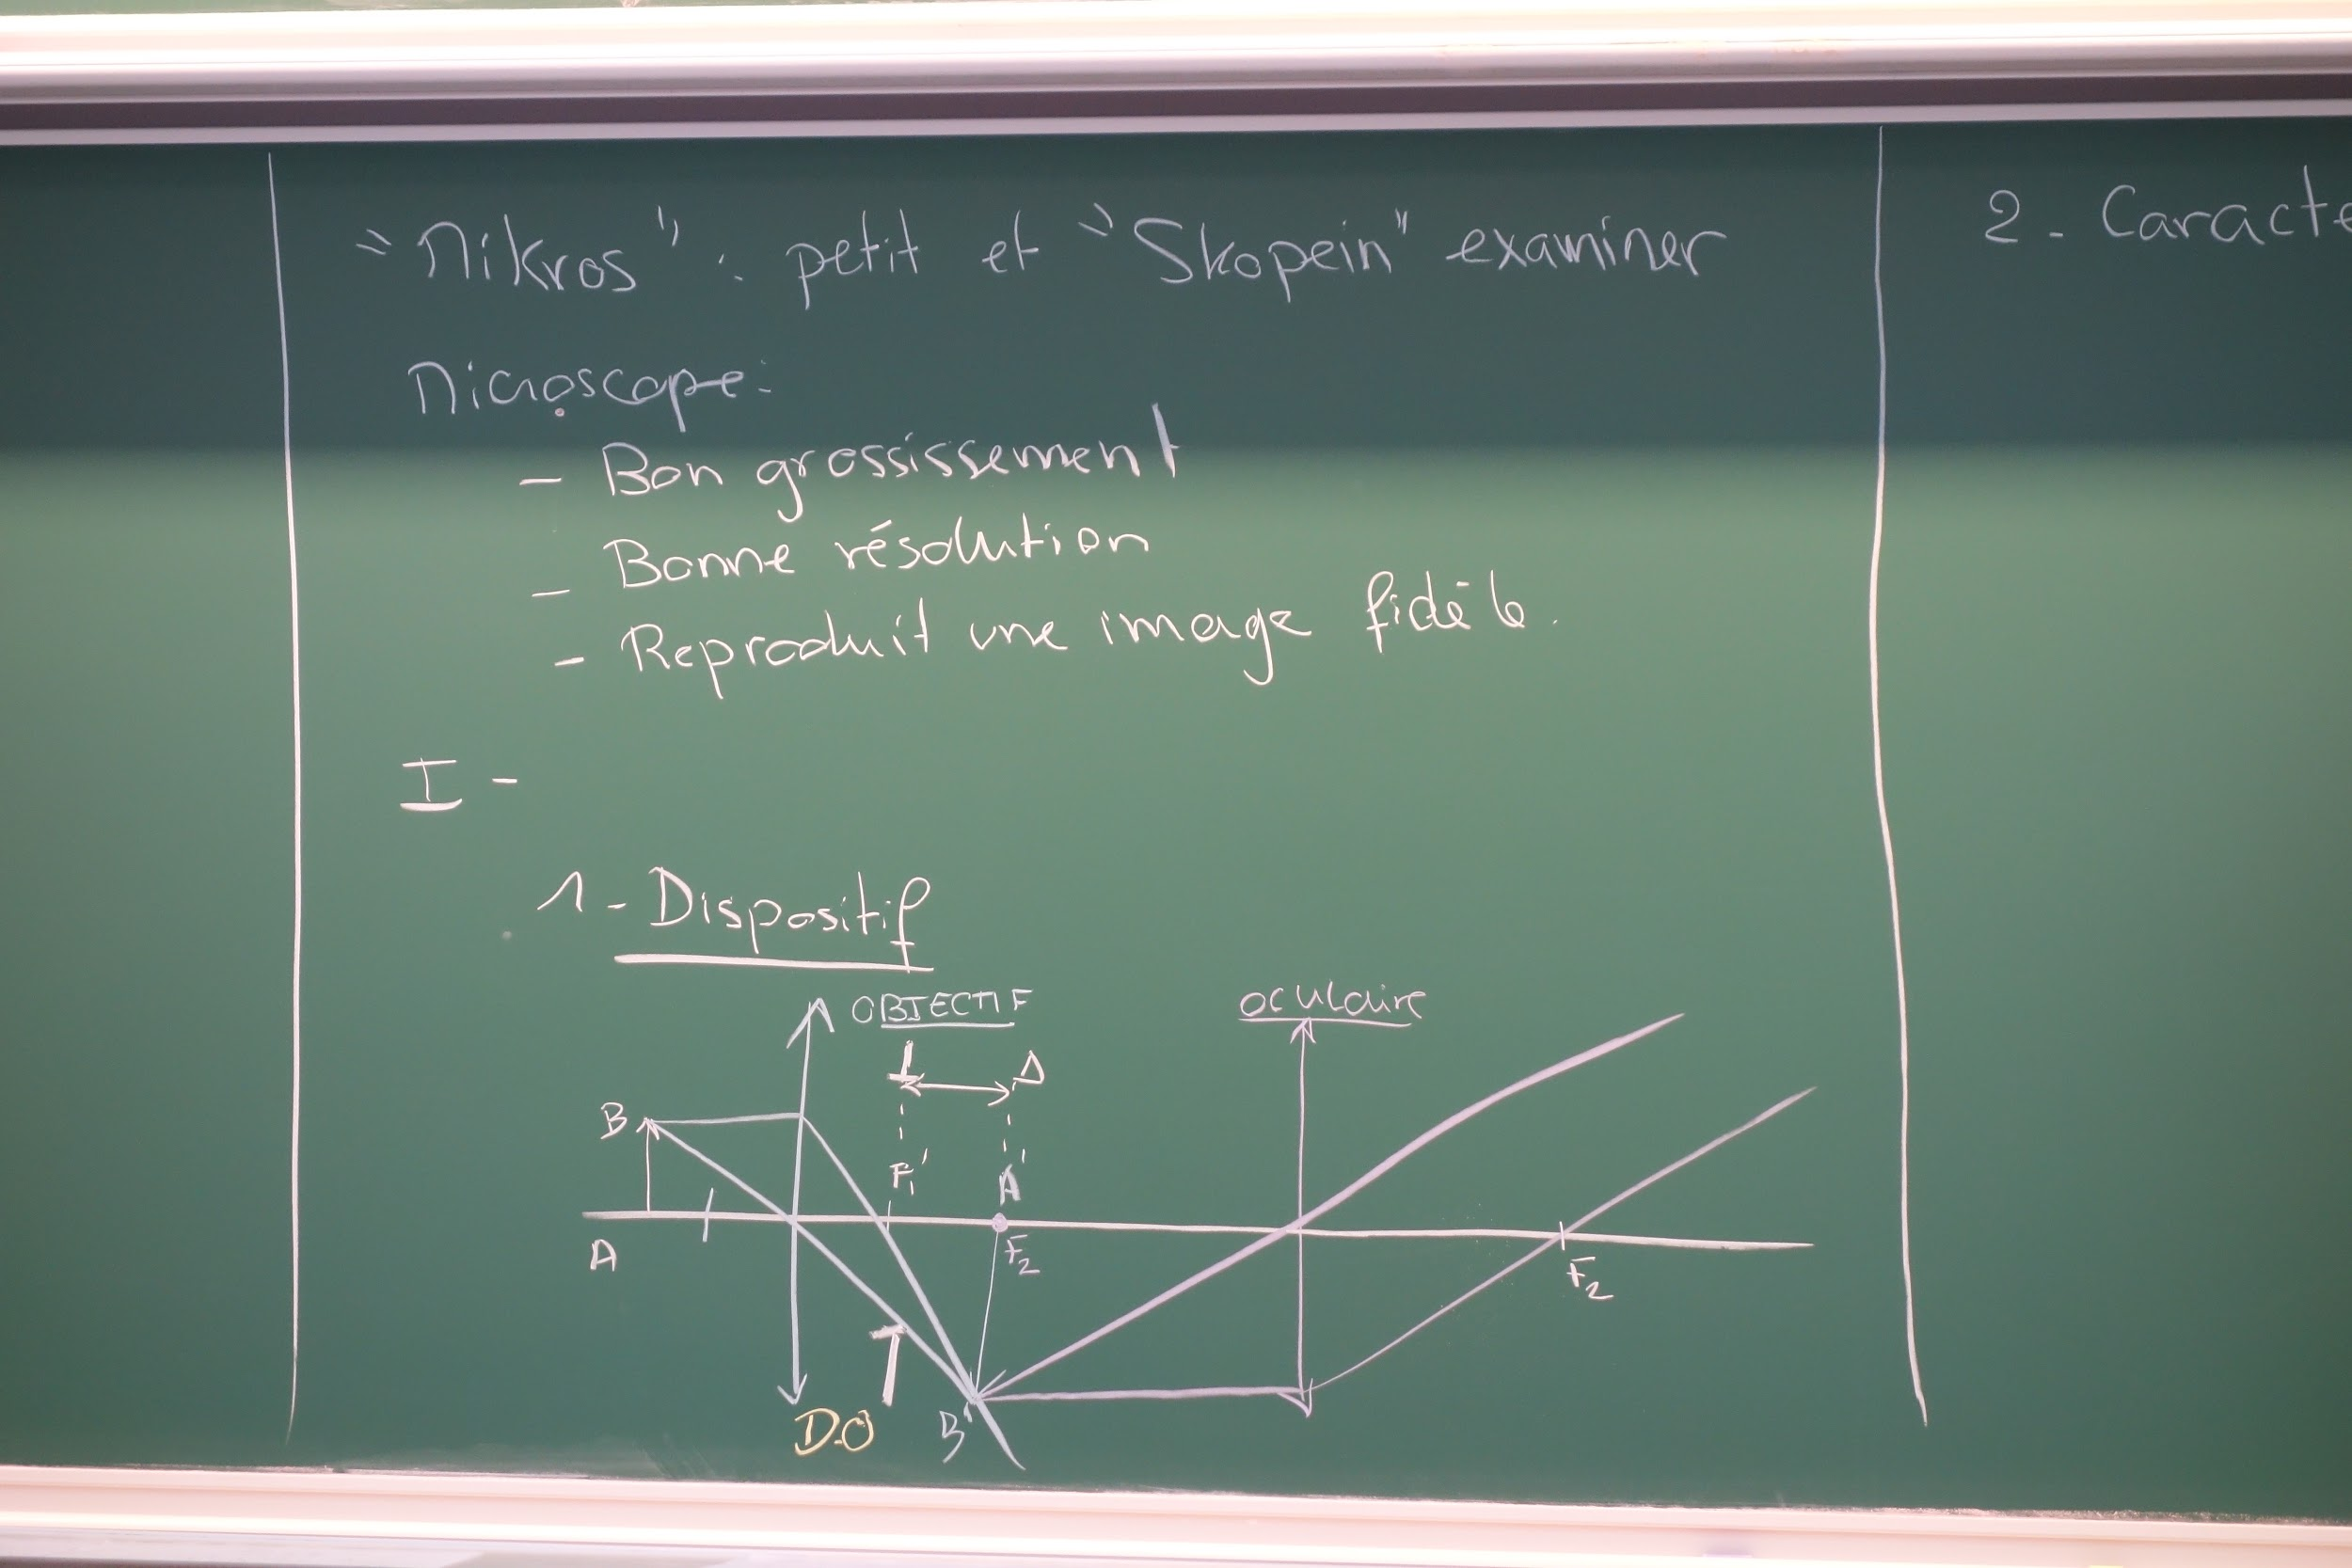 "Mikros" : petit et "Skopein" examiner
Microscope:
- Bon grossissement
- Bonne résolution
- Reproduit une image fidèle.
I -
1 - Dispositif
OBJECTIF
oculaire
Δ
B
F'1
A'
A
F2
F2
D.O
B'
2 - Caracté